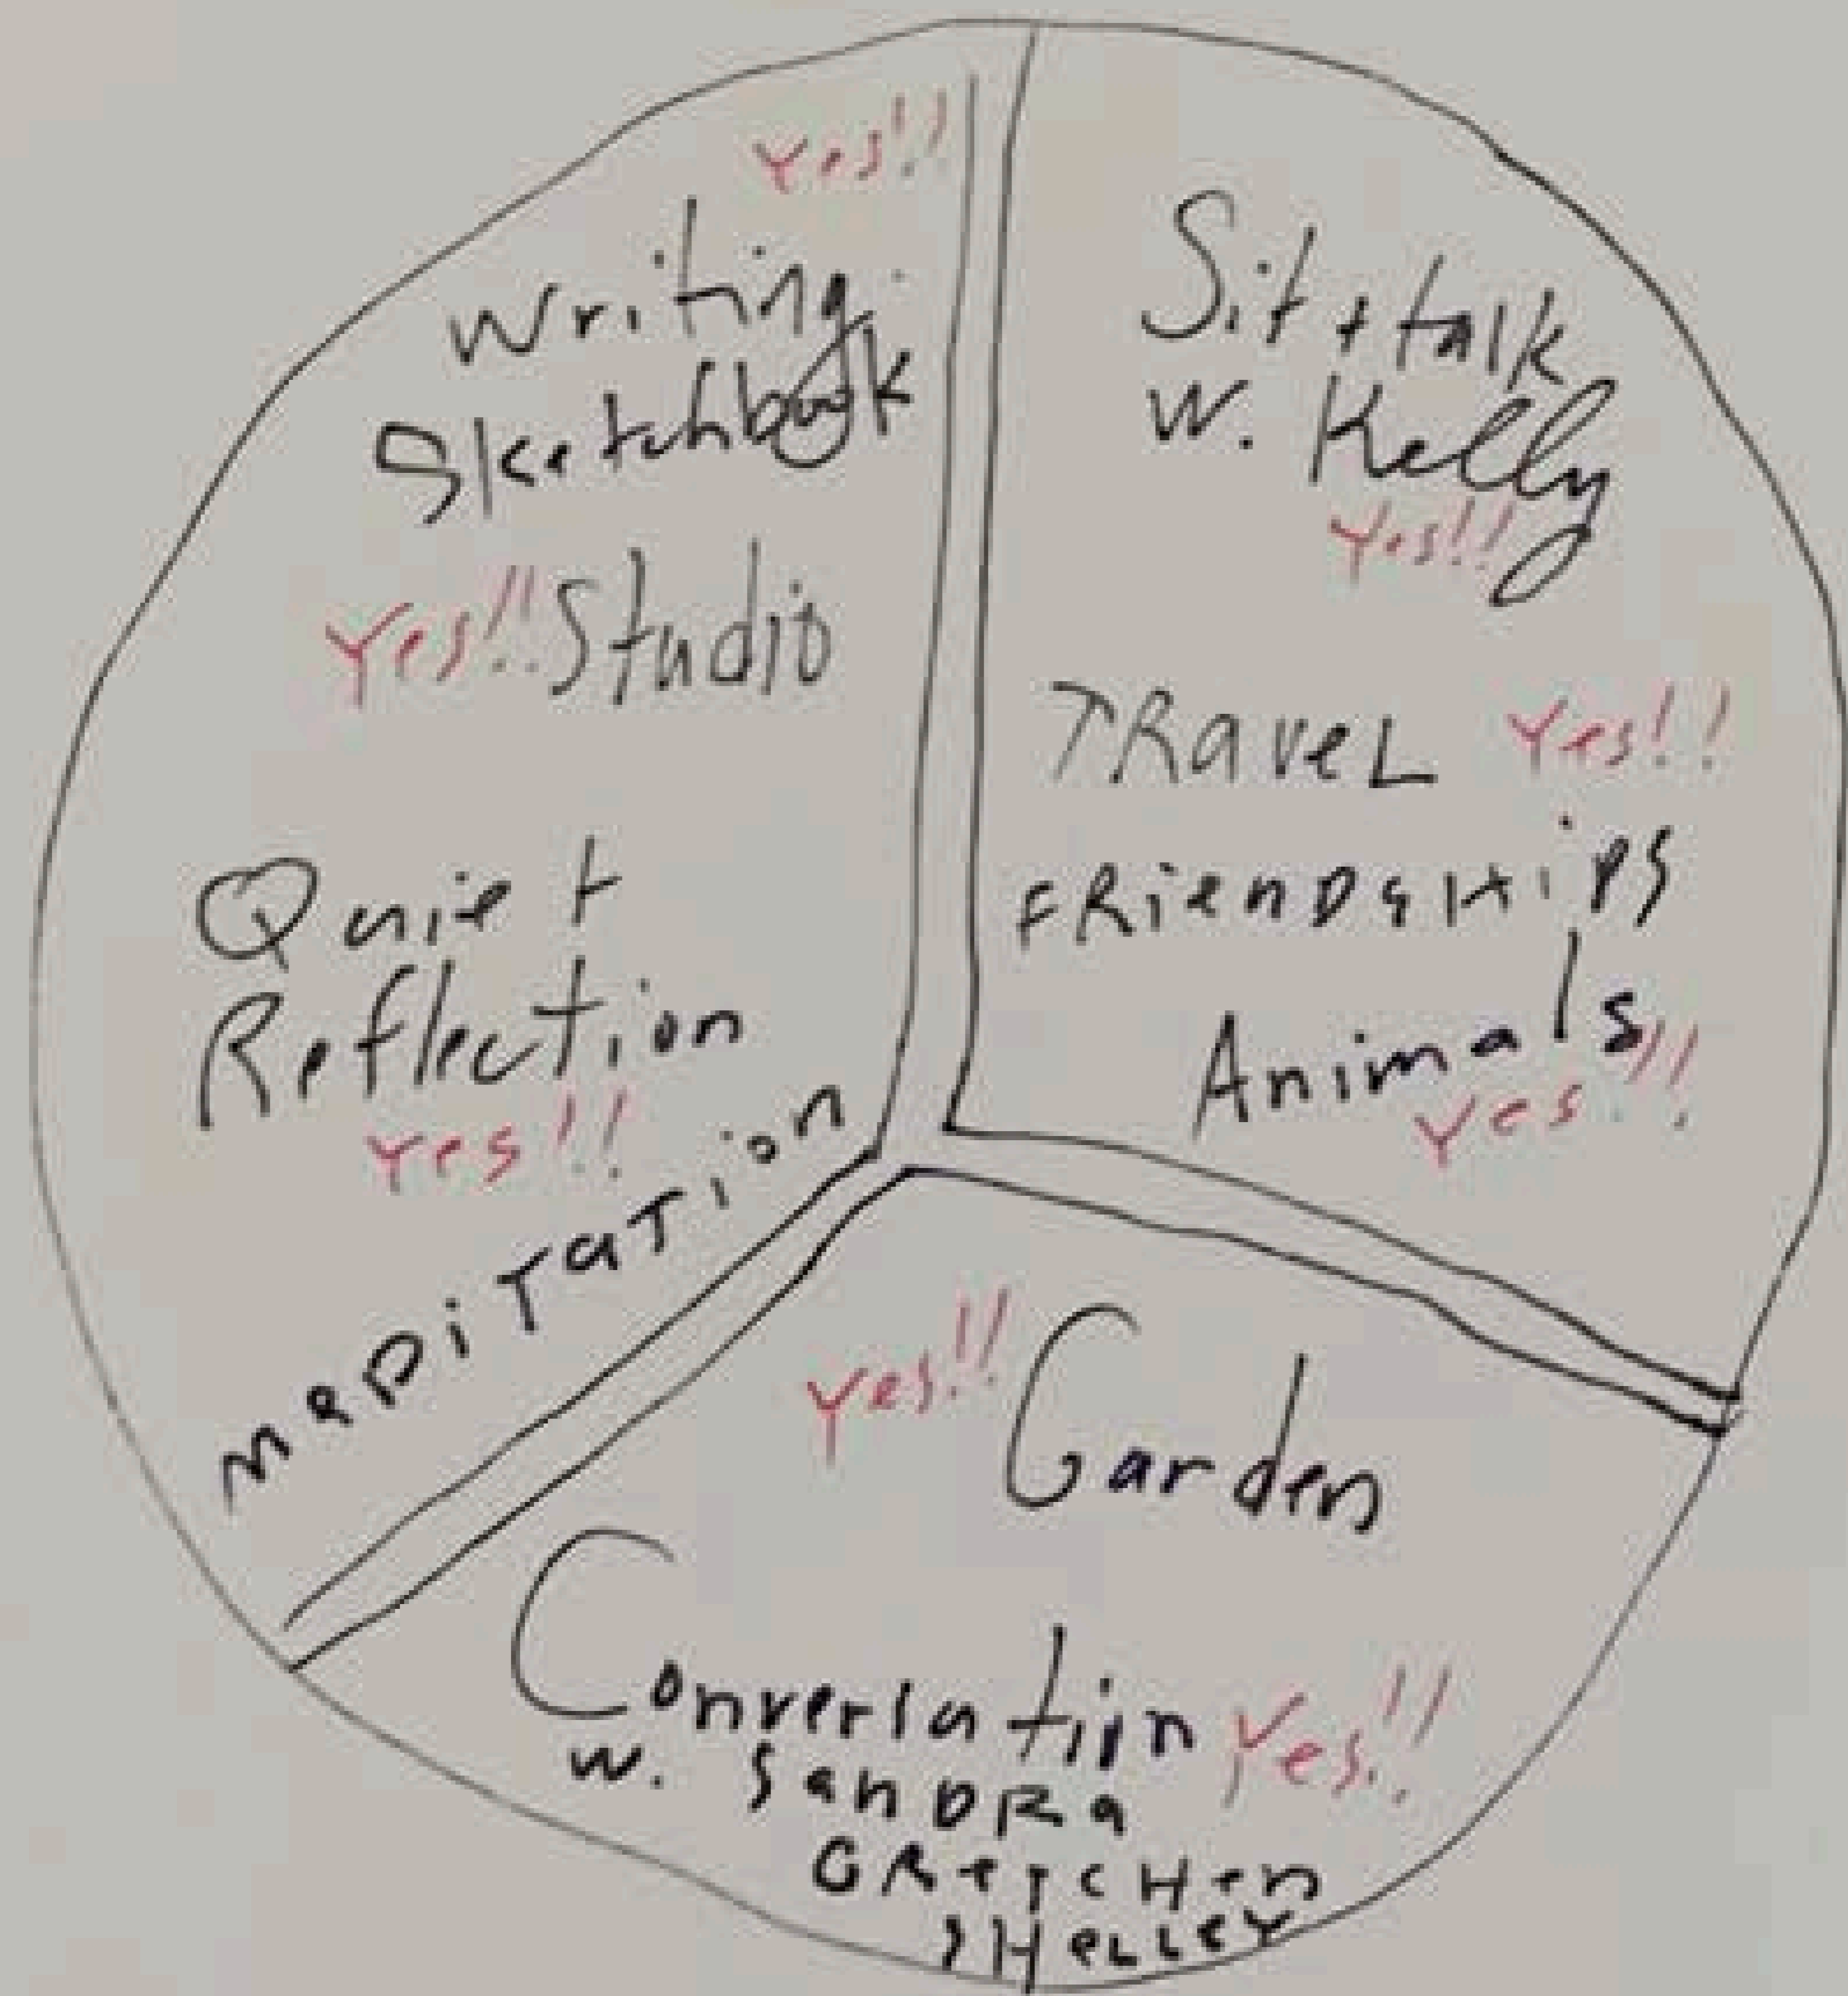 Yes!!
Writing
Sketchbook
Yes!! Studio
Quiet
Reflection
Yes!!
MeDiTaTion
Sit + talk
w. Kelly
Yes!!
TRaveL Yes!!
FRienDsHips
Animals
Yes!!
Yes!! Garden
Conversation Yes!!
w. SanDRa
GReTcHen
SHeLLey